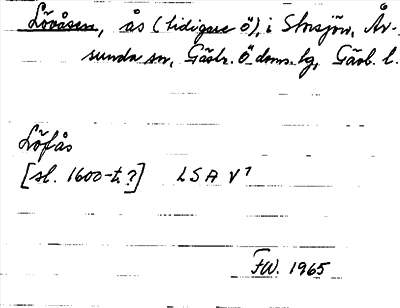 Lövåsen, ås (tidigare ö), i Storsjön, År-
sunda sn, Gästr. Ö. doms. tg, Gävl. l.
Löfås
[sl. 1600-t.?] LSA V¹
FW. 1965